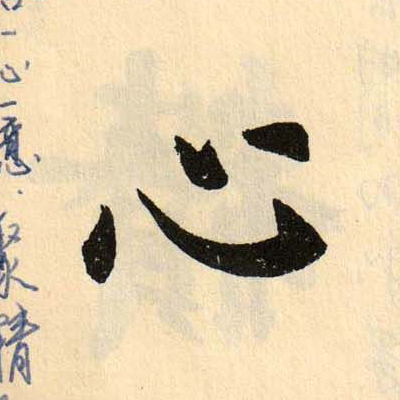 心
一心一意·聚精